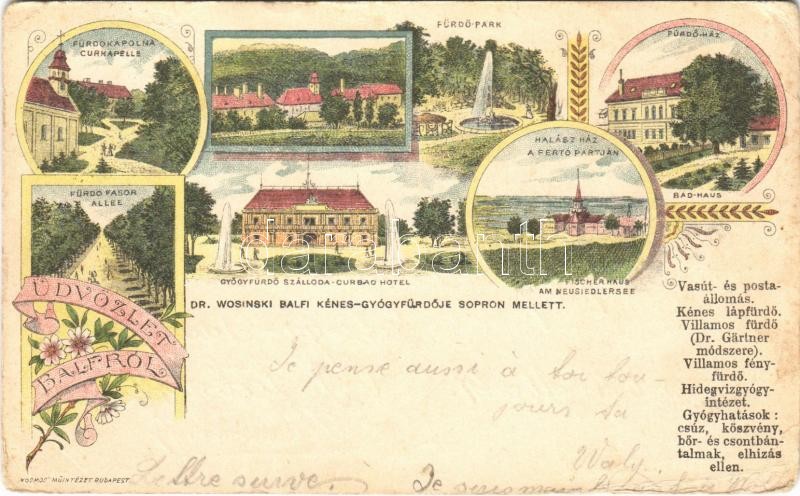 FÜRDŐKÁPOLNA
CURKAPELLE
FÜRDŐ-PARK
FÜRDŐ-HÁZ
BAD-HAUS
HALÁSZ HÁZ
A FERTŐ PARTJÁN
FISCHERHAUS
AM NEUSIEDLERSEE
FÜRDŐ FASOR
ALLEE
GYÓGYFÜRDŐ SZÁLLODA-CURBAD HOTEL
DR. WOSINSKI BALFI KÉNES-GYÓGYFÜRDŐJE SOPRON MELLETT.
ÜDVÖZLET
BALFRÓL
Vasút- és posta-
állomás.
Kénes lápfürdő.
Villamos fürdő
(Dr. Gärtner
módszere).
Villamos fény-
fürdő.
Hidegvizgyógy-
intézet.
Gyógyhatások :
csúz, köszvény,
bőr- és csontbán-
talmak, elhízás
ellen.
Je pense aussi à toi tou-
jours ta
Waly.
Lettre suive.
Je suis
"KOSMOS" MŰINTÉZET BUDAPEST.
darabanth.com